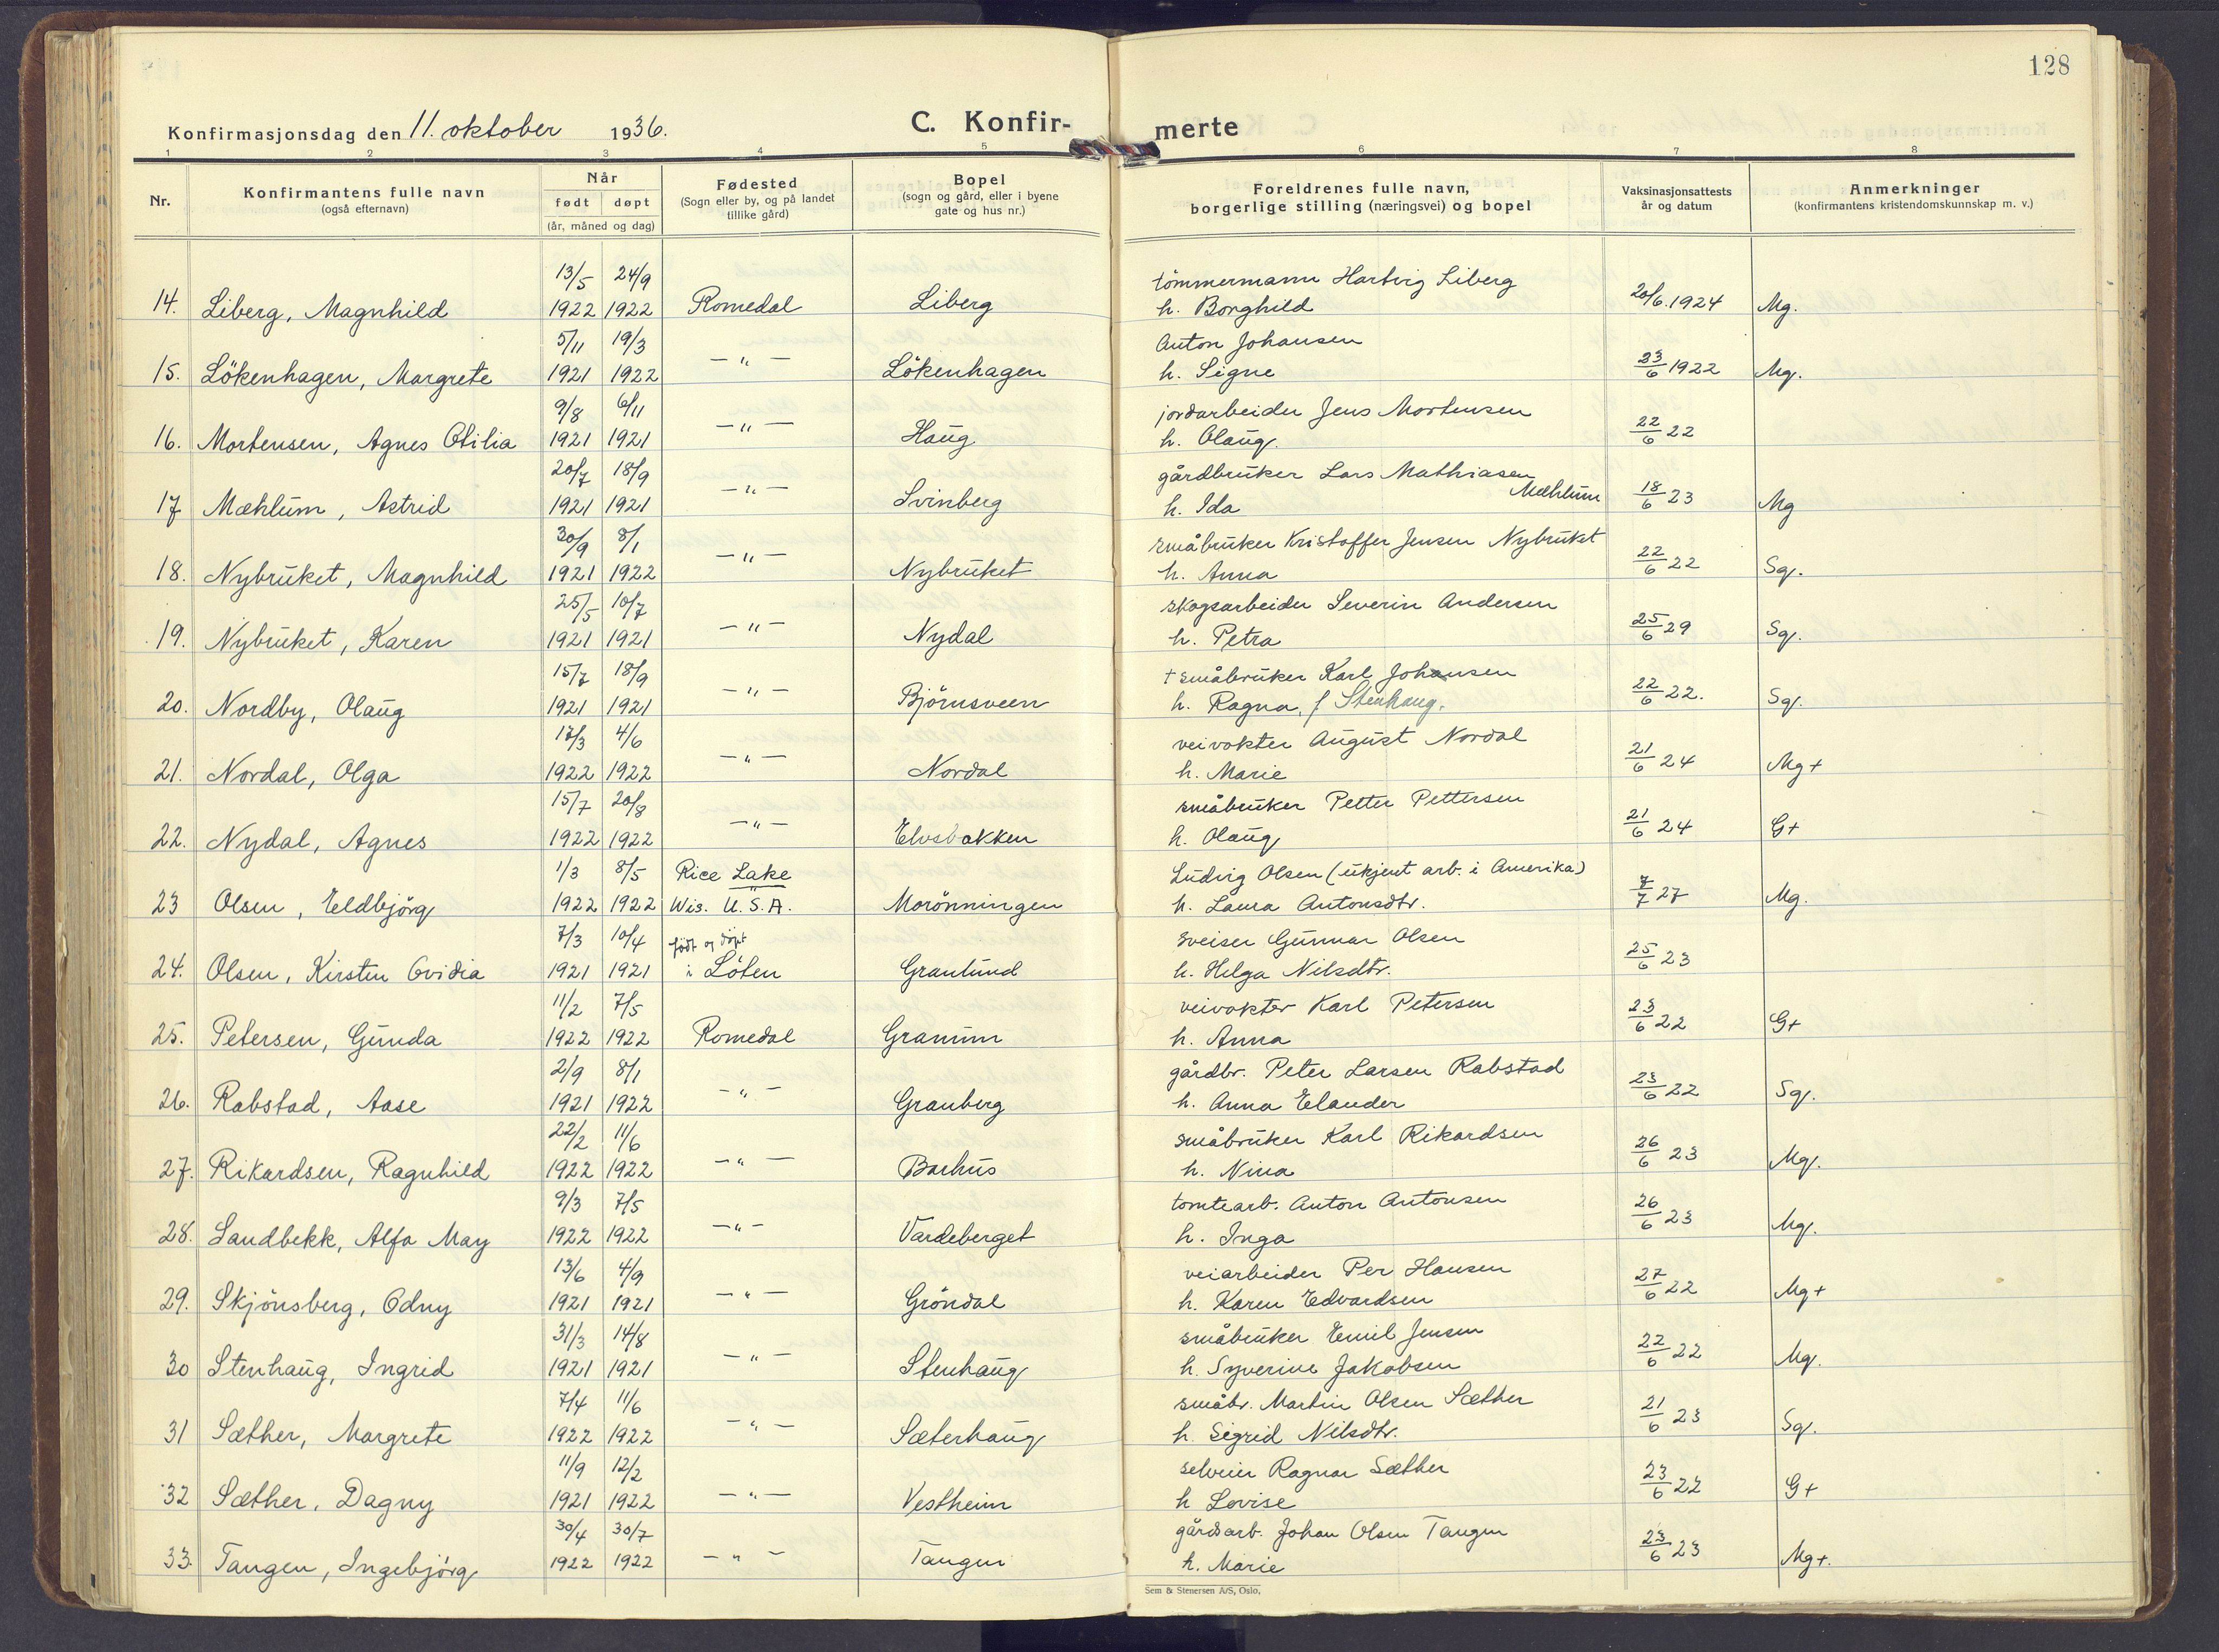 128
Konfirmasjonsdag den 11. oktober 1936.
C. Konfir-
merte
1 2 3 4 5 6 7 8
Nr.
Konfirmantens fulle navn
(også efternavn)
Når
født døpt
(år, måned og dag)
Fødested
(Sogn eller by, og på landet
tillike gård)
Bopel
(sogn og gård, eller i byene
gate og hus nr.)
Foreldrenes fulle navn,
borgerlige stilling (næringsvei) og bopel
Vaksinasjonsattests
år og datum
Anmerkninger
(konfirmantens kristendomskunnskap m. v.)
13/5 24/9 tömmermann Hartvig Liberg
14. Liberg, Magnhild 1922 1922 Romedal Liberg h. Borghild 20/6.1924 Mg.
5/11 19/3 Anton Johansen
15. Lökenhagen, Margrete 1921 1922 —"— Lökenhagen h. Signe 23/6 1922 Mg.
9/8 6/11 jordarbeider Jens Mortensen
16. Mortensen, Agnes Otilia 1921 1921 —"— Haug h. Olaug. 22/6 22
20/7 18/9 gårdbruker Lars Mathiasen
Mæhlum
17 Mæhlum, Astrid 1921 1921 —"— Svinberg h. Ida 18/6 23 Mg
30/9 8/1 småbruker Kristoffer Jensen Nybruket
18. Nybruket, Magnhild 1921 1922 —"— Nybruket h. Anna 22/6 22 Sg.
25/5 10/7 skogsarbeider Severin Andersen
19. Nybruket, Karen 1921 1921 —"— Nydal h. Petra 25/6 29 Sg.
15/7 18/9 † småbruker Karl Johansen
20. Nordby, Olaug 1921 1921 —"— Björnsveen h. Ragna, f Stenhaug. 22/6 22. Sg.
4/6 veivokter August Nordal
21. Nordal, Olga 1922 1922 —"— Nordal h. Marie 21/6 24 Mg+
15/7 20/8 småbruker Petter Pettersen
22. Nydal, Agnes 1922 1922 —"— Elvsbakken h. Olaug 21/6 24 G+
1/3 8/5 Rice Lake Ludvig Olsen (ukjent arb. i Amerika)
23 Olsen, Eldbjörg 1922 1922 Wis. U.S.A. Morönningen h. Laura Antonsdtr. 7/7 27 Mg.
7/3 10/4 født og döpt sveiser Gunnar Olsen
24. Olsen, Kirsten Ovidia 1921 1921 i Löten Granlund h. Helga Nilsdtr. 25/6 23
11/2 7/5 veivokter Karl Petersen
25. Petersen, Gunda 1922 1922 Romedal Granum h. Anna 23/6 22 G+
2/9 8/1 gårdbr. Peter Larsen Rabstad
26. Rabstad, Aase 1921 1922 —"— Granberg h. Anna Elander 23/6 22 Sg.
22/2 11/6 småbruker Karl Rikardsen
27. Rikardsen, Ragnhild 1922 1922 —"— Barhus h. Nina 26/6 23 Mg.
9/3 7/5 tomtearb. Anton Antonsen
28. Sandbekk, Alfa May 1922 1922 —"— Vardeberget h. Inga 26/6 23 Mg.
13/6 4/9 veiarbeider Per Hansen
29. Skjönsberg, Odny 1921 1921 —"— Gröndal h. Karen Edvardsen 27/6 22 Mg+
31/3 14/8 småbruker Emil Jensen
30 Stenhaug, Ingrid 1921 1921 —"— Stenhaug h. Syverine Jakobsen 22/6 22 Mg.
7/4 11/6 småbr. Martin Olsen Sæther
31 Sæther, Margrete 1922 1922 —"— Sæterhaug h. Sigrid Nilsdtr. 21/6 23 Sg.
11/9 12/2 selveier Ragnar Sæther
32 Sæther, Dagny 1921 1922 —"— Vestheim h Lovise 23/6 22 G+
30/4 30/7 gårdsarb. Johan Olsen Tangen
33. Tangen, Ingebjörg 1922 1922 —"— Tangen h. Marie 23/6 23 Mg+.
Sem & Stenersen A/S, Oslo.